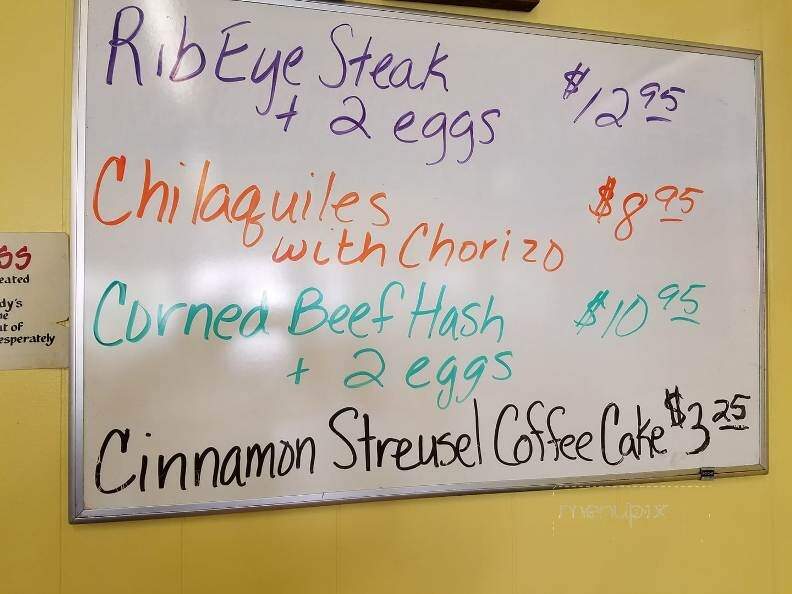 RibEye Steak $12.95
+ 2 eggs
Chilaquiles $8.95
with Chorizo
Corned Beef Hash $10.95
+ 2 eggs
Cinnamon Streusel Coffee Cake $3.25
SS
eated
dy's
e
t of
esperately
menupix